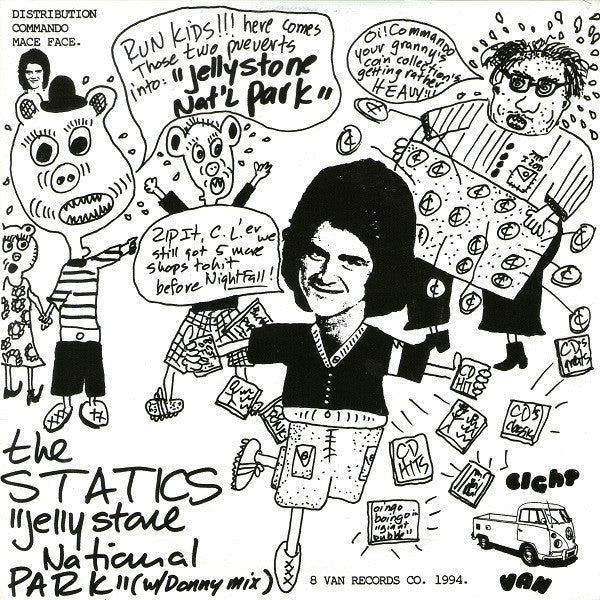 DISTRIBUTION
COMMANDO
MACE FACE.
RUN KIDS!!! here comes
Those two preverts
into: "jellystone
Nat'l Park"
Oi! Commando
your granny's
coin collection's
getting rather
HEAVY!!
ZIP It, C. L.' er we
still got 5 more
shops to hit
before NightFall!
CD
HITS
CD's
CD's
CD
HITS
oingo
boingo in
"giant
the
STATICS
"jellystone
National
PARK" (w/Donny mix)
EIGHT
VAN
8 VAN RECORDS CO. 1994.